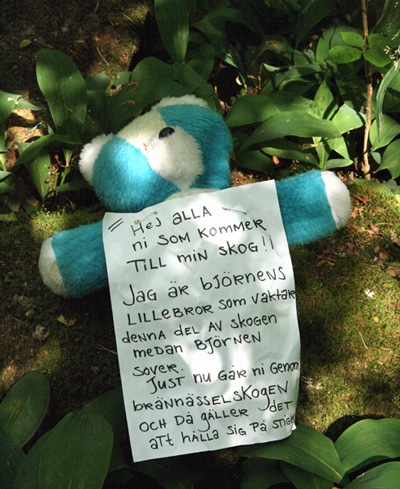 = Hej ALLA
ni SOM KOMMER
TiLL min SKOG!!
JAG ÄR BJÖRNENS
LILLEBROR SOM VAKTAR
DENNA DEL AV SKOGEN
MEDAN BJÖRNEN
SOVER.
JUST NU GÅR Ni GENOM
BRÄNNÄSSELSKOGEN
OCH DÅ GÄLLER DET
ATT HÅLLA SIG PÅ STIGEN